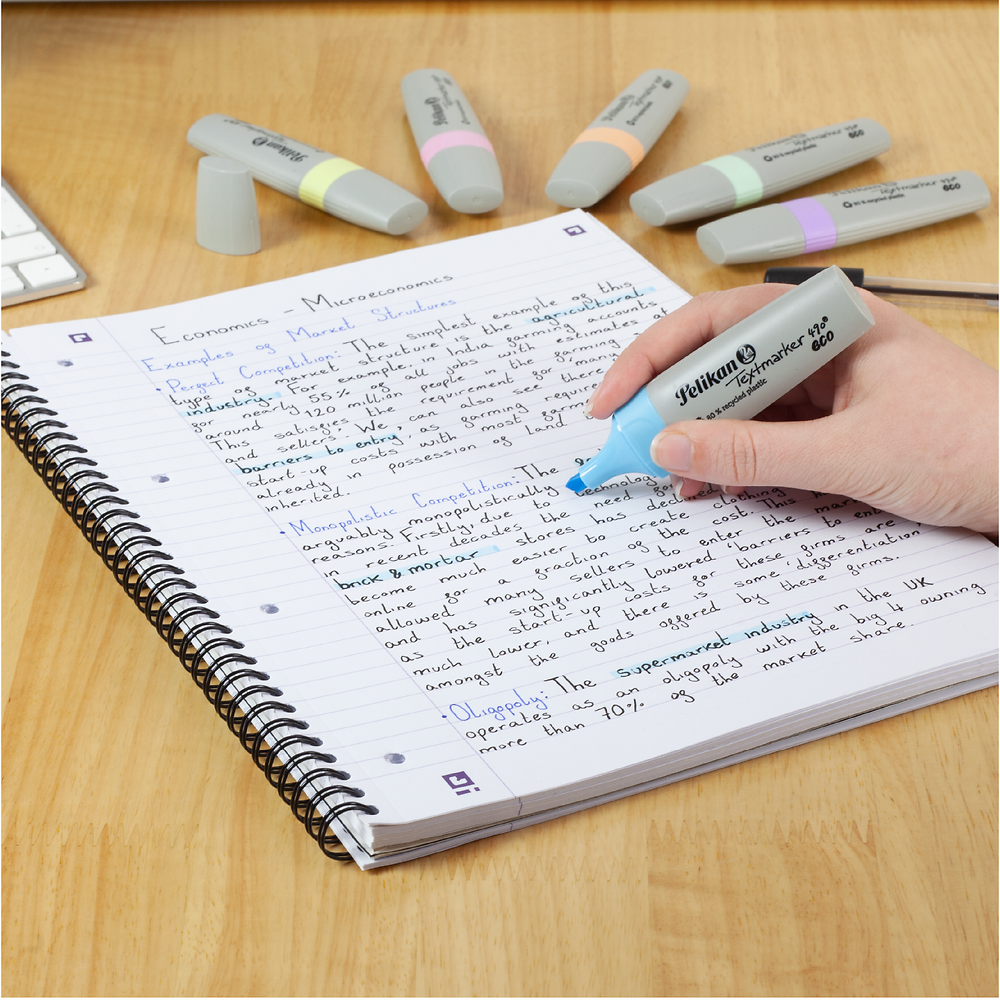 Pelikan
Pelikan
Pelikan
Pelikan Textmarker 490 eco
80% recycled plastic
Pelikan Textmarker 490 eco
80% recycled plastic
Economics - Microeconomics
Examples of Market Structures
• Perfect Competition: The simplest example of this
type of market structure is the agricultural
industry. For example, in India farming accounts
for nearly 55% of all jobs with estimates of
around 120 million people in the farming
This satisfies the requirement for many
and sellers. We can also see there
barriers to entry, as farming requires
start-up costs with most farmers
already in possession of land or
inherited.
• Monopolistic Competition: The
arguably monopolistically
reasons. Firstly, due to technolog
in recent decades the need for
brick & mortar stores has declined
become much easier to create clothing
online for a fraction of the cost. This
allowed for many sellers to enter the market
and has significantly lowered 'barriers to entry
as the start-up costs for these firms are
much lower, and there is some 'differentiation
amongst the goods offered by these firms.
• Oligopoly: The supermarket industry in the UK
operates as an oligopoly with the big 4 owning
more than 70% of the market share.
Pelikan
Textmarker 490®
eco
80% recycled plastic